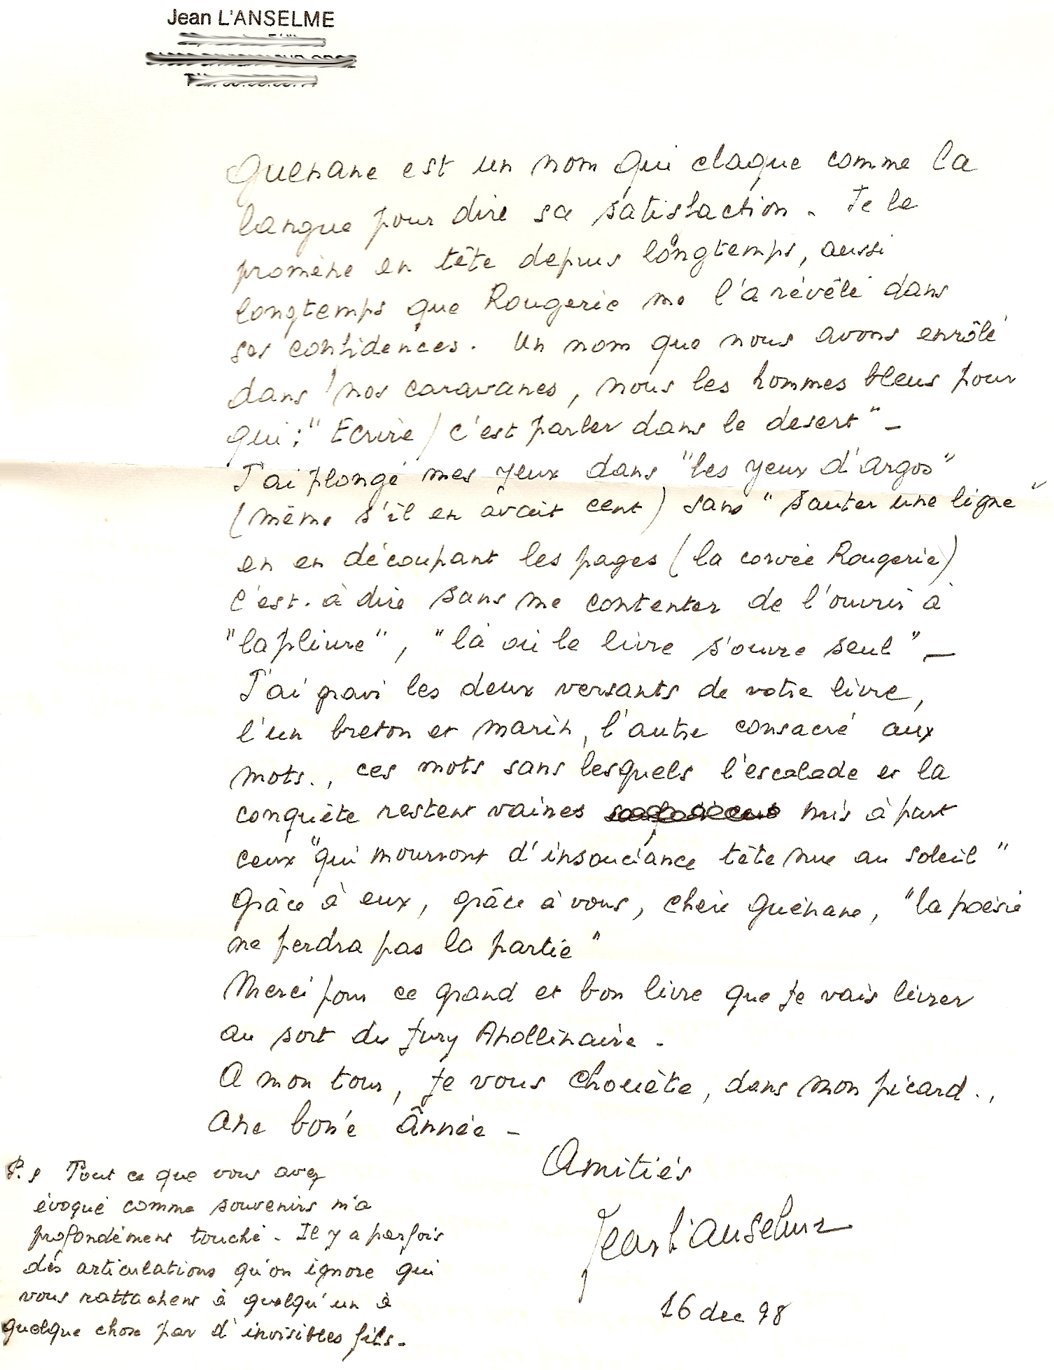 Jean L'ANSELME
Guénane est un nom qui claque comme la
langue pour dire sa satisfaction. Je le
promène en tête depuis longtemps, aussi
longtemps que Rougerie me l'a révélé dans
ses confidences. Un nom que nous avons enrôlé
dans nos caravanes, nous les hommes bleus pour
qui : "Ecrire / c'est parler dans le desert" -
J'ai plongé mes yeux dans "les yeux d'argos"
(même s'il en avait cent) sans "sauter une ligne"
en en découpant les pages (la corvée Rougerie)
c'est-à dire sans me contenter de l'ouvrir à
"laplivre", "là où le livre s'ouvre seul" -
J'ai gravi les deux versants de votre livre,
l'un breton et marin, l'autre consacré aux
mots., ces mots sans lesquels l'escalade et la
conquête restent vaines mis à part
ceux "qui mourront d'insouciance tête nue au soleil"
Grâce à eux, grâce à vous, chère Guénane, "la poésie
ne perdra pas la partie"
Merci pour ce grand et bon livre que je vais livrer
au sort du Jury Apollinaire.
A mon tour, je vous chouète, dans mon picard.,
ane bon'e ânnée -
Amitiés
Jean L'Anselme
16 dec 98
P.S Tout ce que vous avez
évoqué comme souvenirs m'a
profondément touché. Il y a parfois
des articulations qu'on ignore qui
vous rattachent à quelqu'un à
quelque chose par d'invisibles fils.